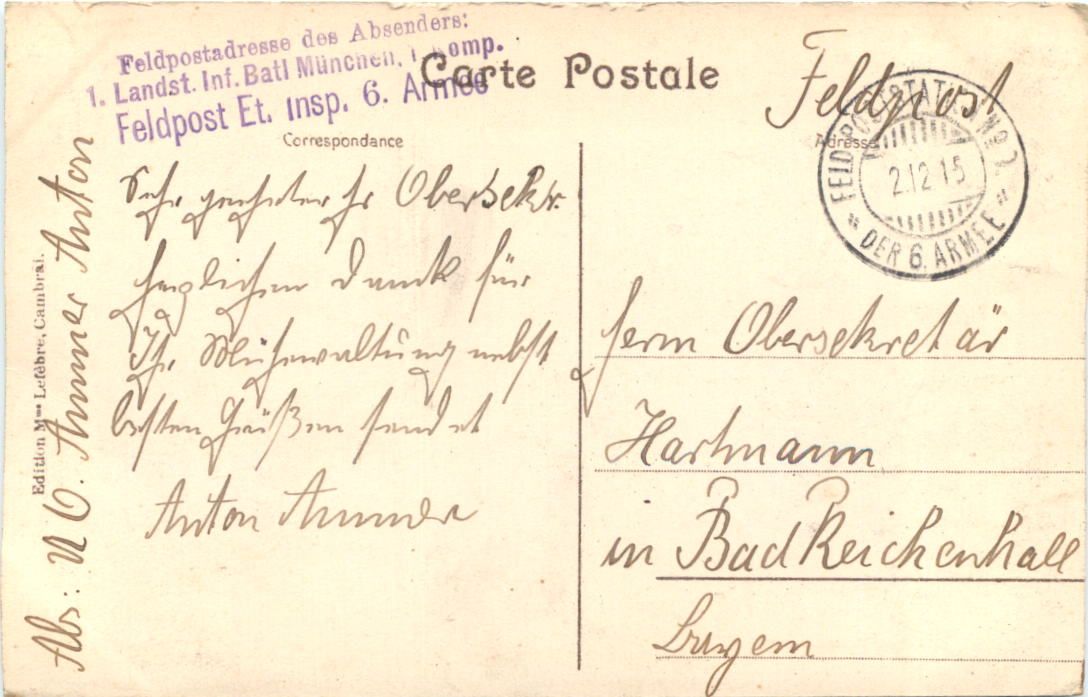 Feldpostadresse des Absenders:
1. Landst. Inf. Batl München, 1. Komp.
Feldpost Et. Insp. 6. Armee
Carte Postale
Feldpost
Correspondance
Adresse
FELDPOSTSTATION No
2.12.15
* DER 6. ARMEE *
Sehr geehrter Hr Obersekr.
herzlichen Dank für
Ihr Mühewaltung nebst
besten Grüßen sendet
Anton Ammer
Herrn Obersekretär
Hartmann
in Bad Reichenhall
Bayern
Edition Mme Lefèbre, Cambrai.
Abs: U O. Ammer Anton